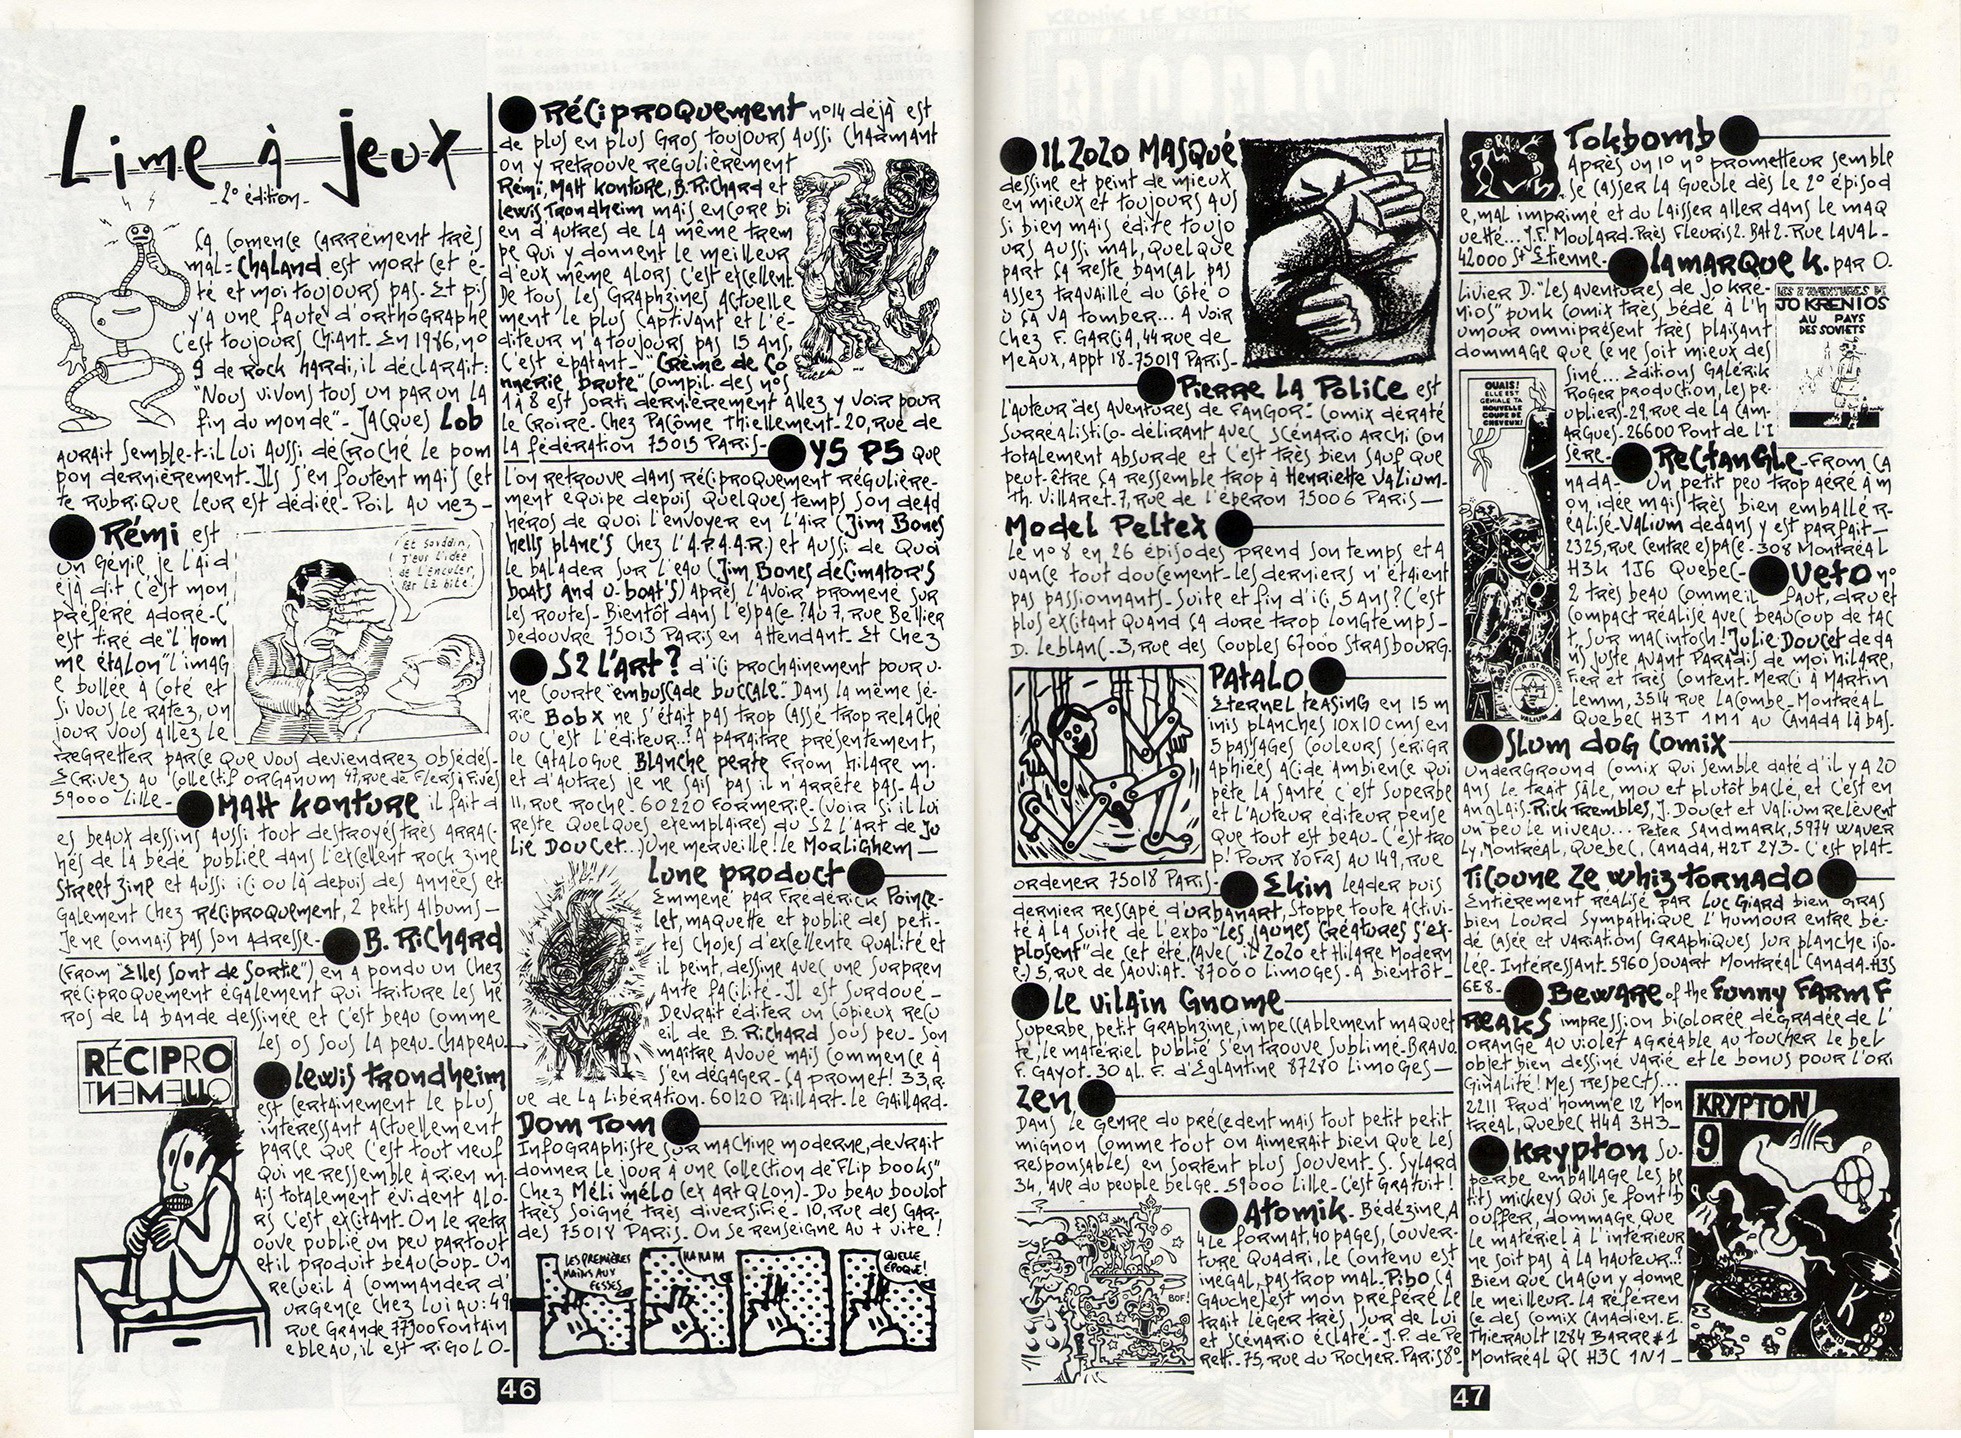 Lime à jeux
_2° édition_
ça comence carrément très
mal = Chaland est mort cet é-
té et moi toujours pas. Et pis
y'a une faute d'orthographe
c'est toujours chiant. En 1986, n°
9 de Rock hardi, il déclarait:
"Nous vivons tous un par un la
fin du monde". Jacques Lob
aurait semble-t-il lui aussi décroché le pom
pon dernièrement. Ils s'en foutent mais cet
te rubrique leur est dédiée. Poil au nez_
Rémi est
un génie je l'ai d
éjà dit, c'est mon
préféré adoré. C'
est tiré de "l'hom
me étalon" l'imag
e bullée à coté et
si vous le ratez, un
jour vous allez le
regretter parce que vous deviendrez obsédés.
Ecrivez au collectif organum 47, rue de Flers à Fives
59000 Lille_
Et soudain,
j'eus l'idée
de l'enculer
par la bite!
Matt Konture il fait d
es beaux dessins aussi tout destroyés très arrac
hés de la bédé publiée dans l'excellent rock zine
Street zine et aussi ici ou là depuis des années et
galement chez Réciproquement, 2 petits albums_
Je ne connais pas son adresse_
B. Richard
(From "Elles sont de sortie") en a pondu un chez
réciproquement également qui triture les hé
ros de la bande dessinée et c'est beau comme
les os sous la peau. Chapeau
RÉCIPRO
QUEMENT
Lewis Trondheim
est certainement le plus
intéressant actuellement
parce que c'est tout neuf
qui ne ressemble à rien m
ais totalement évident alo
rs c'est excitant. On le retr
ouve publié un peu partout
et il produit beaucoup. Un
recueil à commander d'
urgence chez lui au: 49
rue Grande 77300 Fontain
ebleau, il est rigolo_
Réciproquement n°14 déjà est
de plus en plus gros toujours aussi charmant
on y retrouve régulièrement
Rémi, Matt Konture, B. Richard et
Lewis Trondheim mais encore bi
en d'autres de la même trem
pe qui y donnent le meilleur
d'eux même alors c'est excellent.
De tous les graphzines actuelle
ment le plus captivant et l'é-
diteur n'a toujours pas 15 ans,
c'est épatant_ "Crème de co
nnerie brute" compil. des n°s
1 à 8 est sorti dernièrement allez y voir pour
le croire. Chez Pacôme Thiellement. 20, rue de
la fédération 75015 Paris_
Y5 P5 que
l'on retrouve dans réciproquement régulière-
ment équipe depuis quelques temps son dead
héros de quoi l'envoyer en l'air (Jim Bones
hells plane's chez l'A.P.A.A.R.) et aussi de quoi
le balader sur l'eau (Jim Bones decimator's
boats and u-boat's) après l'avoir promené sur
les routes_ Bientôt dans l'espace? Au 7, rue Bellier
Dedouvre 75013 Paris en attendant. Et chez
S2 L'ART? d'ici prochainement pour u-
ne courte "embuscade buccale". Dans la même sé-
rie Bobx ne s'était pas trop cassé trop relaché
ou c'est l'éditeur..? A paraitre présentement,
le catalogue Blanche perte from hilare m.
et d'autres je ne sais pas il n'arrête pas. Au
11, rue Roche. 60220 Formerie. (voir s'il lui
reste quelques exemplaires du S2 L'Art de Ju
lie Doucet..) Une merveille! Le Morlighem_
Lune product
Emmené par Frédérick Poince-
let, maquette et publie des peti-
tes choses d'excellente qualité et
il peint, dessine avec une surpren
ante facilité_ Il est surdoué_
Devrait éditer un copieux recu
eil de B. Richard sous peu_ Son
maître avoué mais commence à
s'en dégager_ ça promet! 33, r.
ue de la Libération. 60120 Paillart. Le Gaillard.
Dom Tom
Infographiste sur machine moderne, devrait
donner le jour à une collection de "flip books"
chez Méli mélo (ex Art QLon). Du beau boulot
très soigné très diversifié_ 10, rue des Gar-
des 75018 Paris. On se renseigne au + vite!
LES PREMIÈRES
MAINS AUX
FESSES
HA HA HA
QUELLE
ÉPOQUE!
46
IL ZOZO MASQUÉ
dessine et peint de mieux
en mieux et toujours aus
si bien mais édite toujo
urs aussi mal, quelque
part ça reste bancal pas
assez travaillé du côté o
ù ça va tomber... A voir
chez F. Garcia, 44 rue de
Meaux, appt 18. 75019 Paris_
Pierre la Police est
l'auteur "des aventures de Fangor". Comix dératé
surréalistico-délirant avec scénario archi con
totalement absurde et c'est très bien sauf que
peut-être ça ressemble trop à Henriette Valium_
Th. Villaret. 7, rue de l'éperon 75006 Paris_
Model Peltex
Le n°8 en 26 épisodes prend son temps et a
vance tout doucement_ les derniers n'étaient
pas passionnants_ Suite et fin d'ici, 5 ans? C'est
plus excitant quand ça dure trop longtemps_
D. Leblanc_ 3, rue des couples 67000 Strasbourg.
PATALO
Eternel teasing en 15 m
inis planches 10x10 cms en
5 passages couleurs sérigr
aphiées acide ambience qui
pète la santé c'est superbe
et l'auteur éditeur pense
que tout est beau. C'est tro
p! Pour 80 frs au 149, rue
ordener 75018 Paris.
Ekin leader puis
dernier rescapé d'urbanart, stoppe toute activi-
té à la suite de l'expo "Les jaunes créatures s'ex-
plosent" de cet été, (avec il zozo et Hilare Modern
e.) 5, rue de Sauviat. 87000 Limoges. A bientôt_
Le vilain Gnome
Superbe, petit graphzine, impeccablement maquet
té, le matériel publié s'en trouve sublimé. Bravo.
F. Gayot. 30 al. F. d'Eglantine 87280 Limoges_
Zen
Dans le genre du précedent mais tout petit petit
mignon comme tout on aimerait bien que les
responsables en sortent plus souvent. S. Sylard
34, ave du peuple belge_ 59000 Lille_ C'est gratuit!
BOF!
Atomik. Bédézine, A
4 Le format. 40 pages, couver-
ture quadri, le contenu est
inégal, pas trop mal. Pibo, (à
gauche) est mon préféré le
trait léger très sur de lui
et scénario éclaté_ J.P. de Pe
retti_ 75, rue du Rocher. Paris 8°
Tokbomb
Après un 1° n° prometteur semble
se casser la gueule dès le 2° épisod
e, mal imprimé et du laisser aller dans le maq
uette... J.F. Moulard. Près Fleuris 2. Bat 2. Rue Laval_
42000 St Etienne_
La marque K. par O.
Livier D. "Les aventures de Jo Kre-
nios" punk comix très, bédé à l'h
umour omniprésent très plaisant
dommage que ce ne soit mieux des
siné... Editions Galérik
Roger production, les pe-
upliers. 29, rue de la Cam-
argues. 26600 Pont de l'I
sère_
LES 2 AVENTURES DE
JO KRENIOS
AU PAYS
DES SOVIETS
OUAIS!
ELLE EST
GÉNIALE TA
NOUVELLE
COUPE DE
CHEVEUX!
VALIUM
Rectangle_ from ca
nada_ Un petit peu trop aéré à m
on idée mais très bien emballé r-
éalisé. Valium dedans y est parfait_
2325, rue Centre espace. 308 Montréal
H3K 1J6 Quebec_
Veto n°
2 très beau comme il faut, dru et
compact réalisé avec beaucoup de tac
t, sur macintosh! Julie Doucet deda
ns juste avant Paradis de moi hilare,
fier et très content. Merci à Martin
Lemm, 3514 rue Lacombe_ Montréal
Quebec H3T 1M1 au Canada là bas_
Slum dog Comix
Underground comix qui semble daté d'il y a 20
ans le trait sale, mou et plutôt baclé, et c'est en
anglais. Rick Trembles, J. Doucet et Valium relèvent
un peu le niveau... Peter Sandmark, 5974 Waver
ly, Montréal, Québec, Canada, H2T 2Y3_ C'est plat_
Ticoune ze whiz tornado
Entièrement réalisé par Luc Giard bien gras
bien lourd sympathique l'humour entre bé-
dé casée et variations graphiques sur planche iso-
lée. Intéressant. 5960 Souart Montréal Canada_ H3S
6E8_
Beware of the Funny Farm F
reaks impression bicolorée dégradée de l'
orange au violet agréable au toucher le bel
objet bien dessiné varié et le bonus pour l'ori
ginalité! Mes respects...
2211 Prud'homme 12 Mon
tréal, Quebec H4A 3H3_
Krypton su-
perbe emballage les pe
tits mickeys qui se font b
ouffer, dommage que
le matériel à l'intérieur
ne soit pas à la hauteur.?
Bien que chacun y donne
le meilleur. La référen
ce des comix canadien. E.
Thierault 1284 Barre #1
Montréal QC H3C 1N1_
KRYPTON
9
K
47